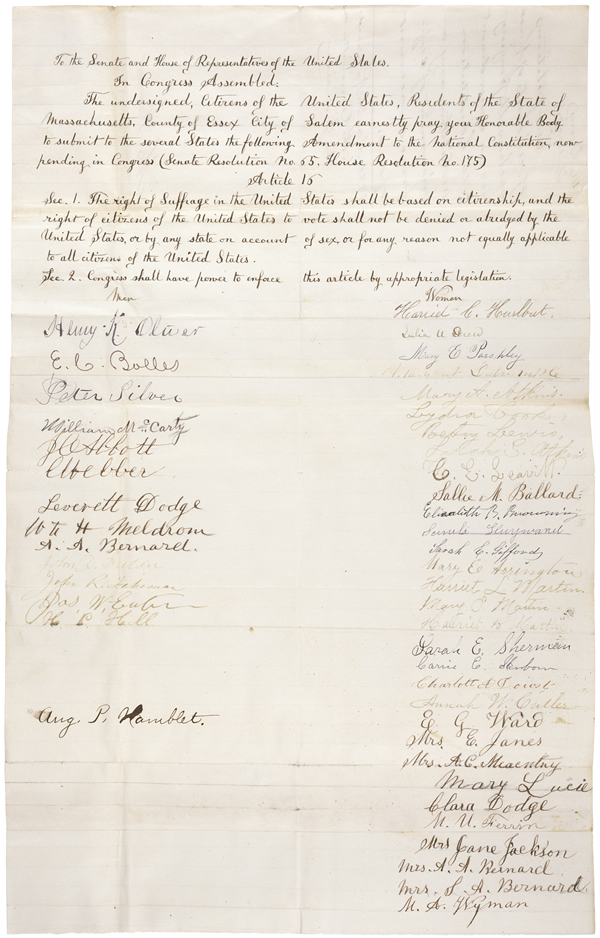 To the Senate and House of Representatives of the United States.
In Congress Assembled:
The undersigned, Citizens of the United States, Residents of the State of
Massachusetts, County of Essex City of Salem earnestly pray, your Honorable Body
to submit to the several States the following Amendment to the national Constitution, now
pending in Congress (Senate Resolution No. 65. House Resolution No. 175)
Article 16
Sec. 1. The right of Suffrage in the United States shall be based on citizenship, and the
right of citizens of the United States to vote shall not be denied or abridged by the
United States, or by any state on account of sex, or for any reason not equally applicable
to all citizens of the United States.
Sec. 2. Congress shall have power to enforce this article by appropriate legislation.
Men
Henry K. Oliver
E. C. Bolles
Peter Silver
William McCarty
J C Abbott
C Webber
Leverett Dodge
Wm H Meldrom
A. A. Bernard.
Jas. W. Eaton
H. C. Hill
Aug. P. Hamblet.
Women
Harriet C. Hurlbut.
Julia A Drew
Mary E
Mary A. Atkins.
Lydia
Betsy Lewis
C. L.
Sallie M. Ballard.
Elizabeth B. Browning
Sarah C. Giffords
Mary E Arrington
Harriet L Martin
Mary P Martin
Harriet B Martin
Sarah E. Sherman
Carrie E.
Charlotte A
Annah W.
E. G. Ward
Mrs. E. Janes
Mrs. A. C.
Mary Lucie
Clara Dodge
M. U. Ferrin
Mrs Jane Jackson
Mrs. A. A. Bernard.
Mrs. S. A. Bernard.
M. A. Wyman